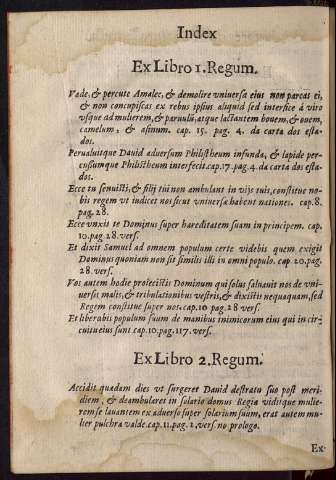 Index
Ex Libro 1. Regum.
Vade, & percute Amalec, & demolire vniversa eius non parcas ei,
& non concupiscas ex rebus ipsius aliquid sed interfice à viro
vsque ad mulierem, & paruulū, atque lactantem bouem, & ouem,
camelum, & asinum. cap. 15. pag. 4. da carta dos esta-
dos.
Perualuitque Dauid aduersum Philistheum infunda, & lapide per-
cussumque Philistheum interfecit. cap. 17. pag. 4. da carta dos esta-
dos.
Ecce tu senuisti, & filij tui non ambulant in vijs tuis, constitue no-
bis regem vt iudicet nos sicut vniuersa habent nationes. cap. 8.
pag. 28.
Ecce vnxit te Dominus super hareditatem suam in principem. cap.
10. pag. 28. vers.
Et dixit Samuel ad omnem populum certe videbis quem exigit
Dominus quoniam non sit similis illi in omni populo. cap. 20. pag.
28. vers.
Vos autem hodie proiecistis Dominum qui solus saluauit nos de vni-
uersis malis, & tribulationibus vestris, & dixistis nequaquam, sed
Regem constitue super nos. cap. 10 pag. 28 vers.
Et liberabis populum suum de manibus inimicorum eius qui in cir-
cuitu eius sunt. cap. 10. pag. 117. vers.
Ex Libro 2. Regum.
Accidit quadam dies vt surgeret Dauid destratu suo post meri-
diem, & deambularet in solario domus Regia viditque mulie-
rem se lauantem ex aduerso super solarium suum, erat autem mu-
lier pulchra valde. cap. 11. pag. 2. vers. no prologo.
Ex